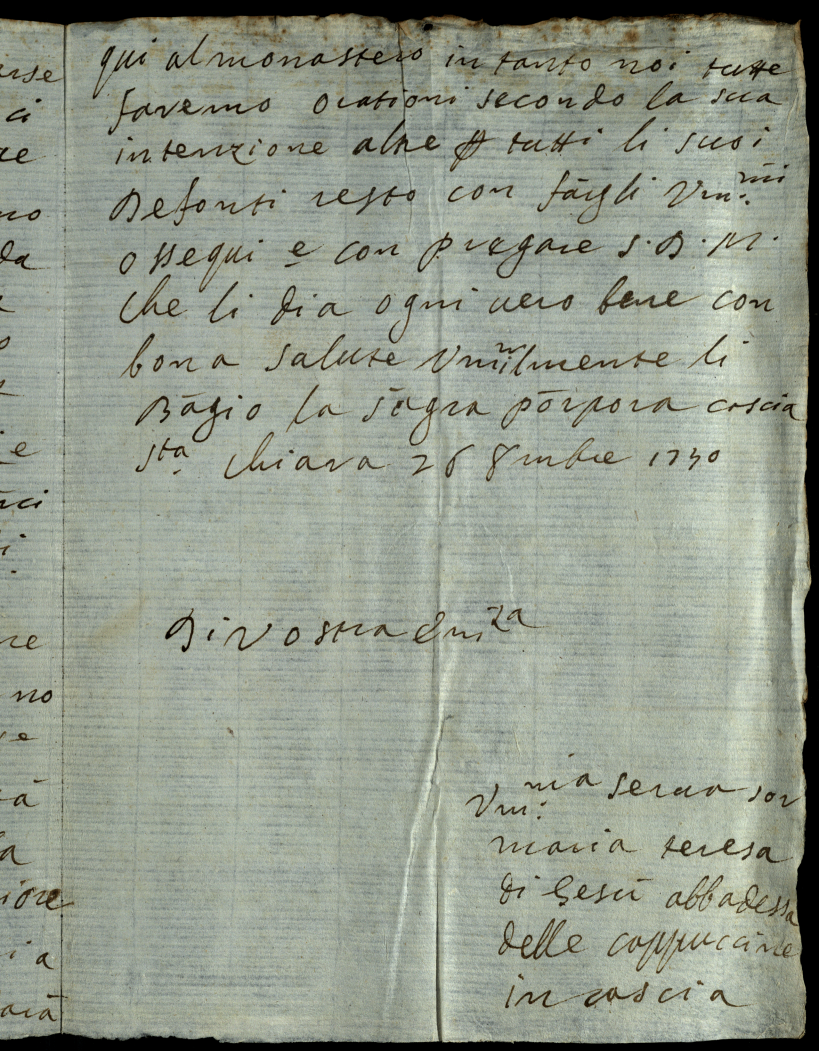 qui al monastero in tanto noi tutte
faremo orationi secondo la sua
intenzione altre p tutti li suoi
Defonti resto con fargli Vm.mi
ossequi e con pregare S. D. M.
che li dia ogni vero bene con
bona salute Vmilmente li
Bagio la sagra porpora coscia
Sta. Chiara 26 8mbre 1730
Di Vostra Emza
Vm.ma serva sor
maria teresa
di Gesu abbadessa
delle coppuccine
in coscia
rse
ci
re
no
da
e
nci
re
no
se
la
iore
ia